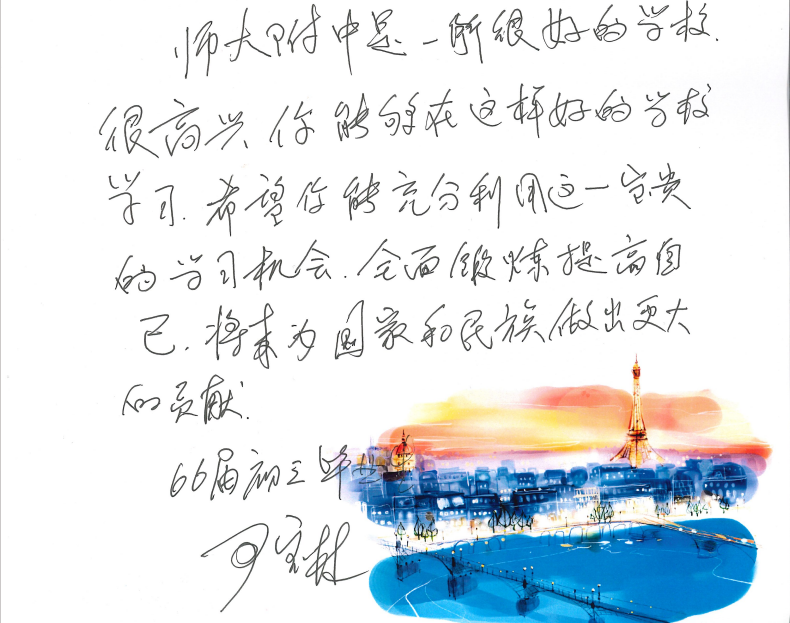 师大附中是一所很好的学校.
很高兴你能够在这样好的学校
学习.希望你能充分利用这一宝贵
的学习机会.全面锻炼提高自
己.将来为国家和民族做出更大
的贡献.
66届初三毕业生
宝林